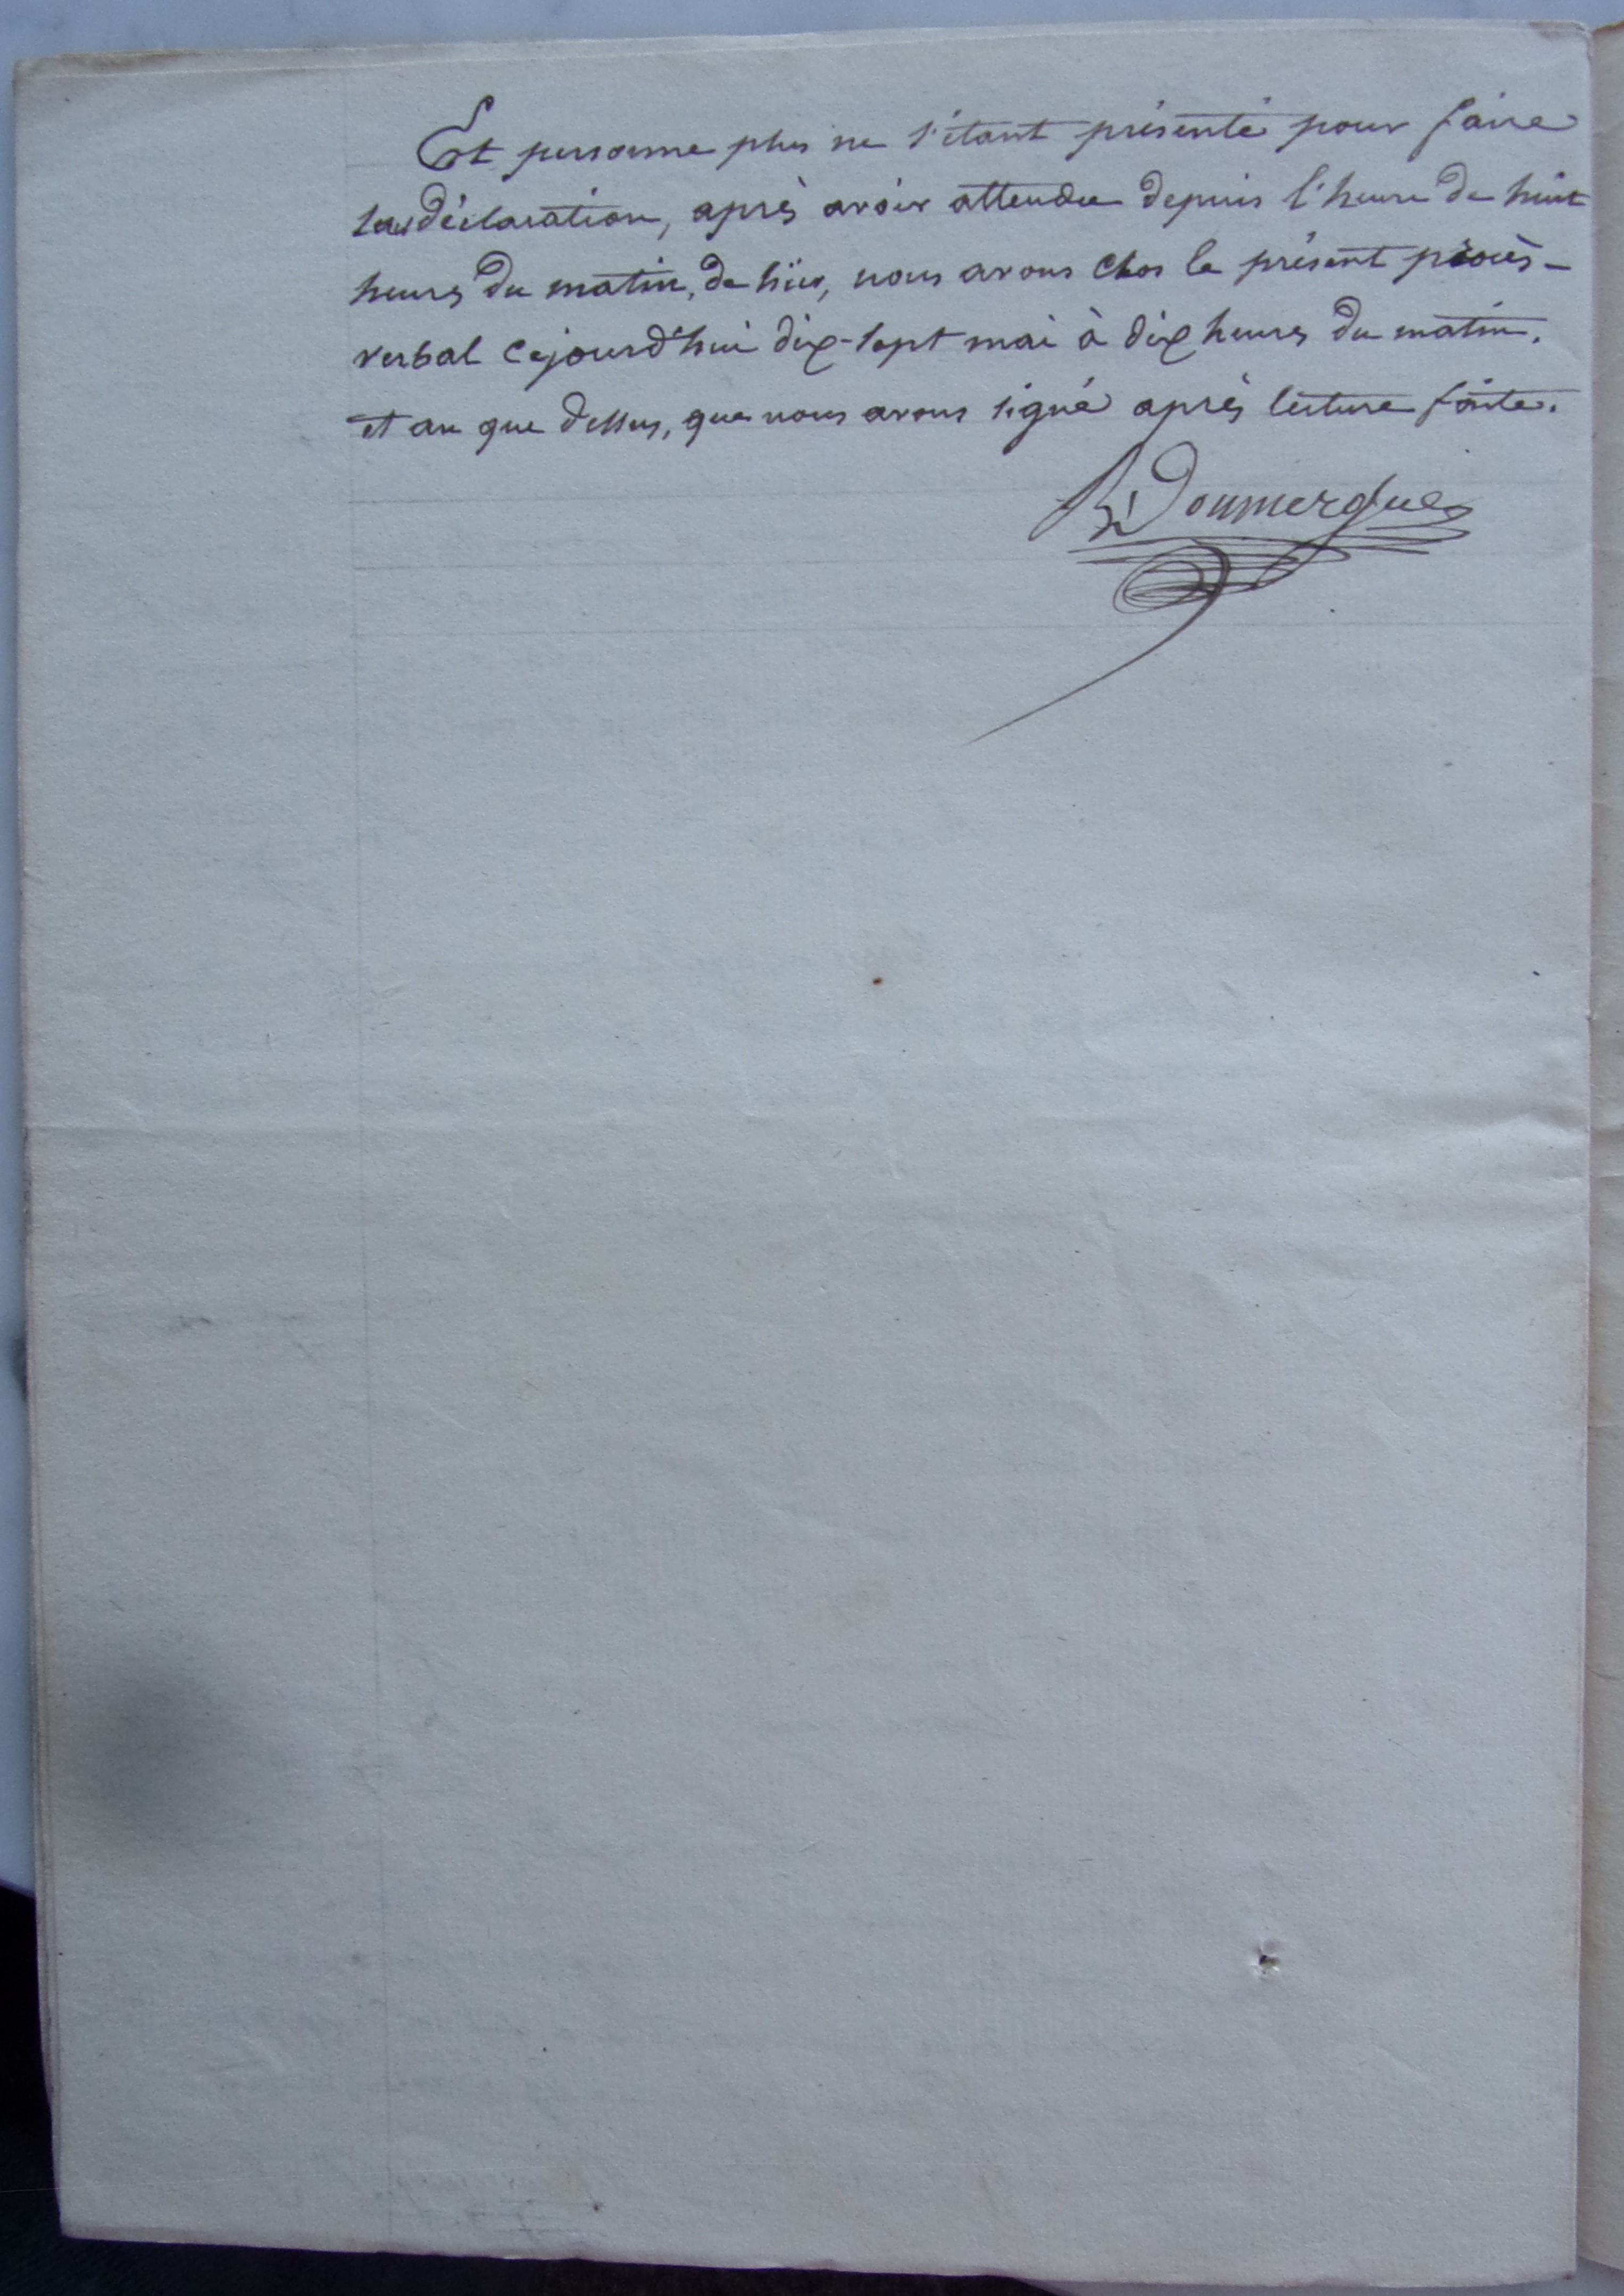 Et personne plus ne s'étant présenté pour faire
sa déclaration, après avoir attendu depuis l'heure de huit
heures du matin, de hier, nous avons clos le présent procès-
verbal cejourd'hui dix-sept mai à dix heures du matin.
et an que dessus, que nous avons signé après lecture faite.
Doumergue